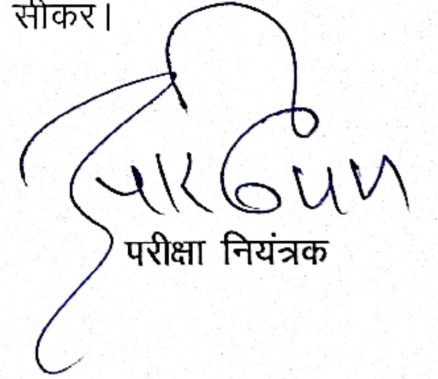 सीकर।
परीक्षा नियंत्रक